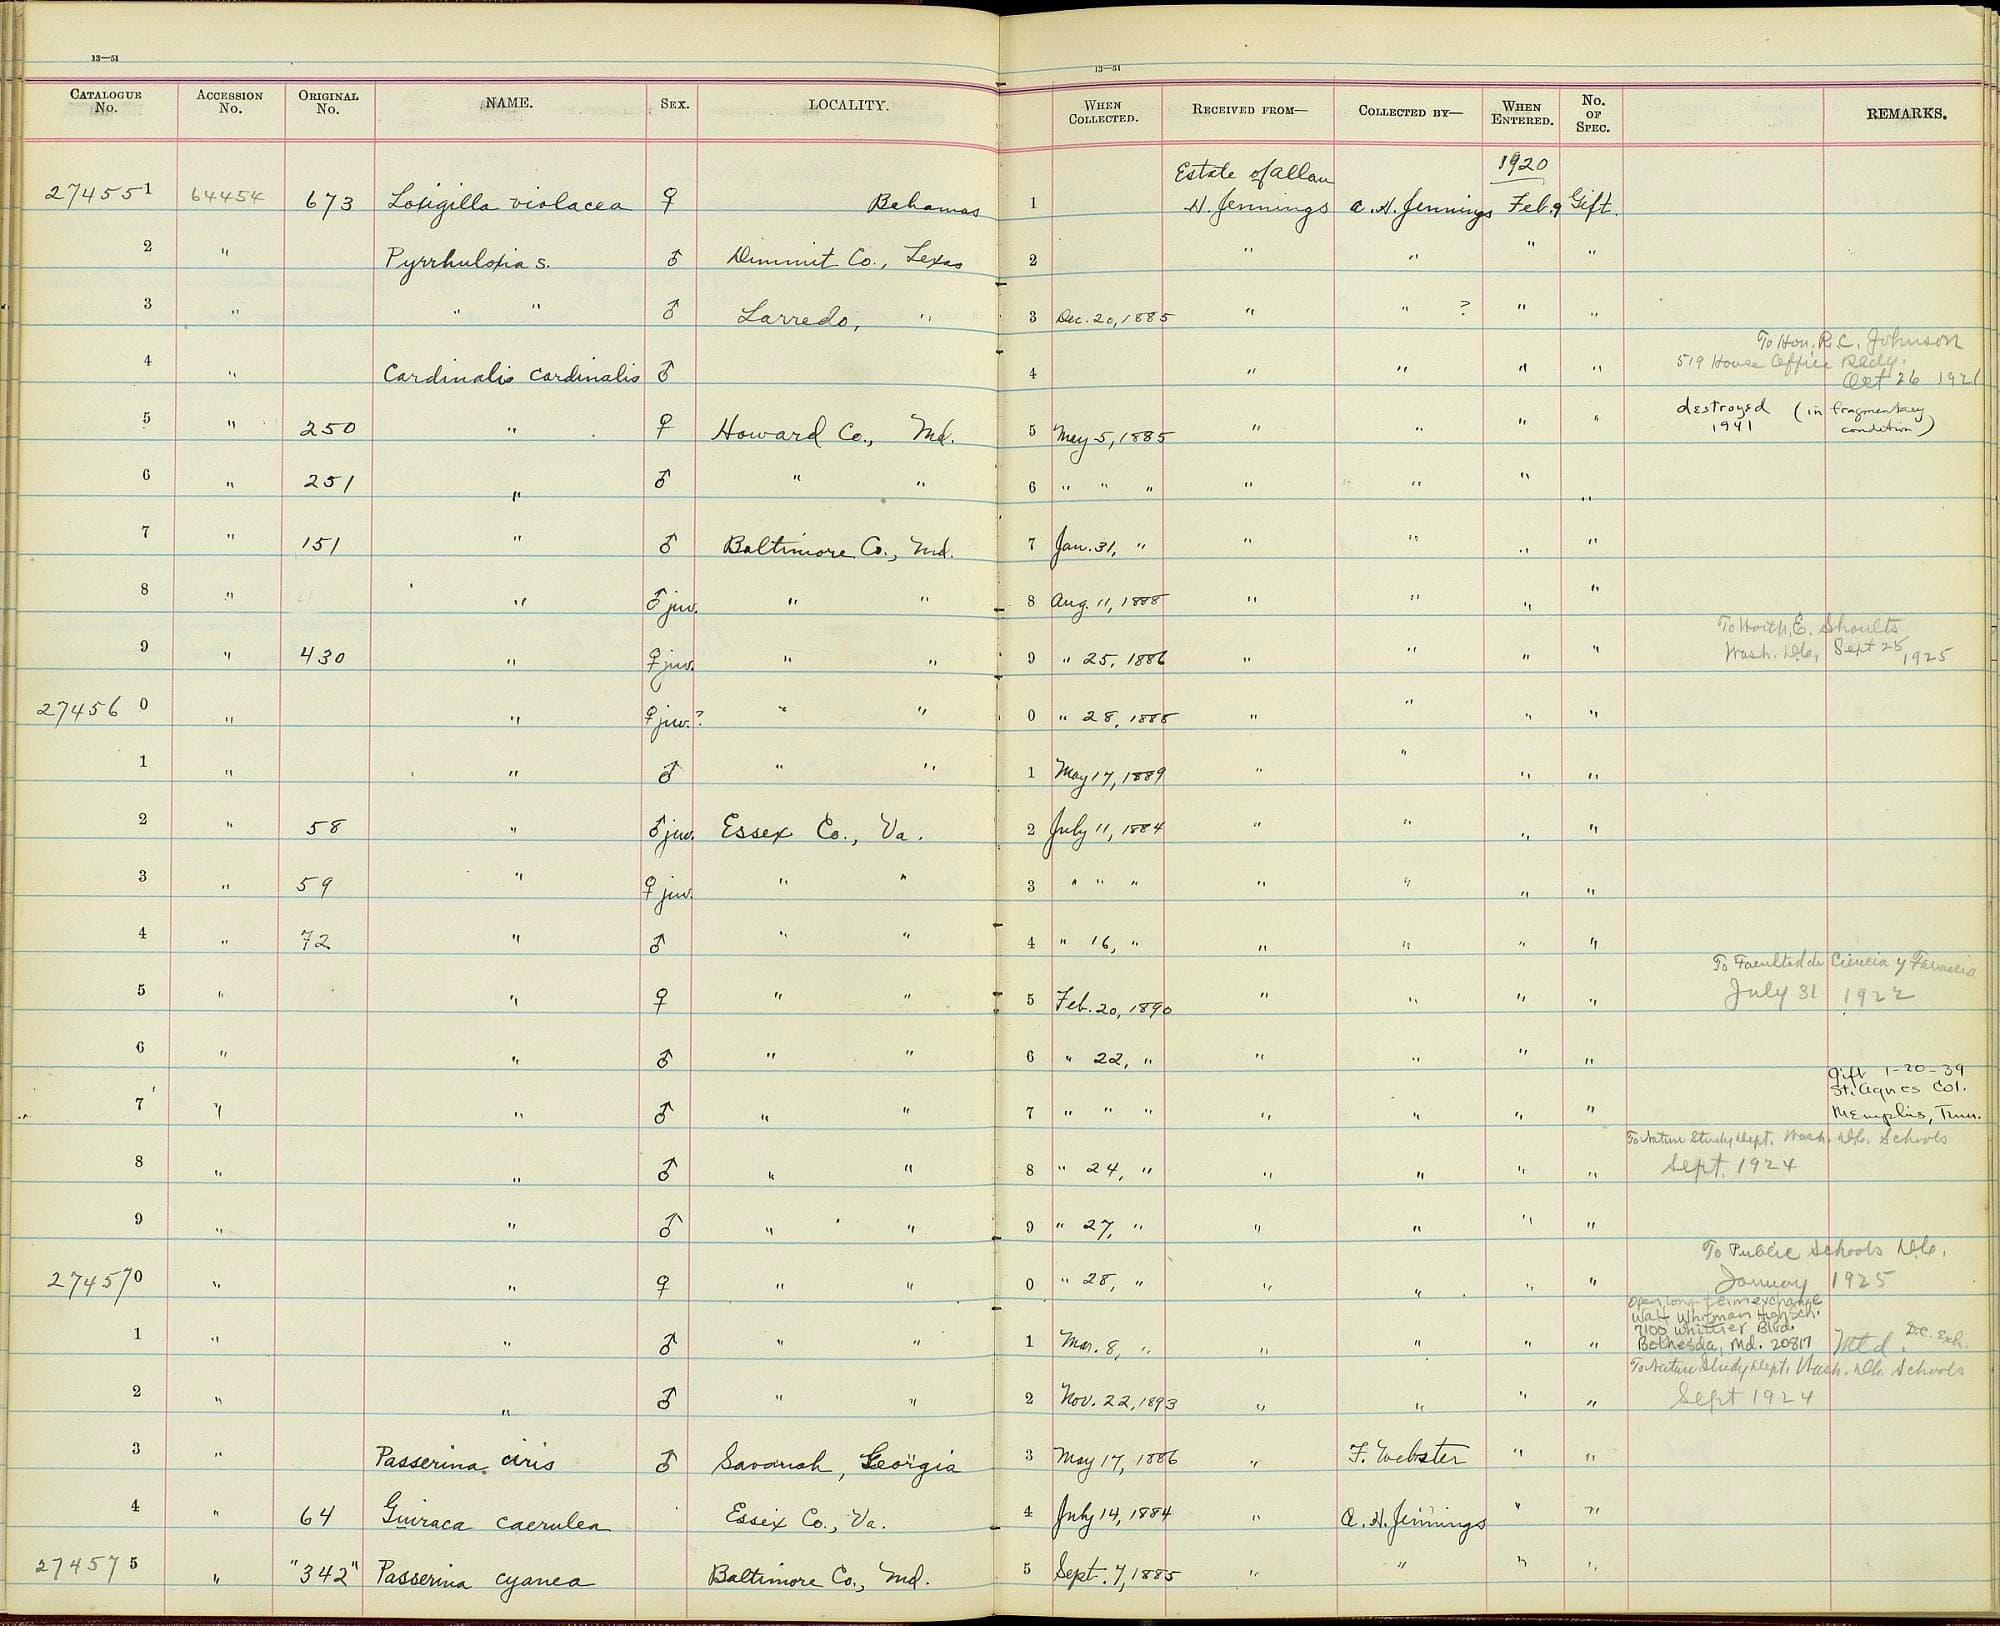 13—51
13—51
CATALOGUE No. ACCESSION No. ORIGINAL No. NAME. SEX. LOCALITY. WHEN COLLECTED. RECEIVED FROM— COLLECTED BY— WHEN ENTERED. No. OF SPEC. REMARKS.
1920
Estate of Allan
274551 64454 673 Loxigilla violacea ♀ Bahamas 1 H. Jennings A. H. Jennings Feb. 9 Gift.
2 " Pyrrhuloxia s. ♂ Dimmit Co., Texas 2 " " " "
3 " " " ♂ Larredo, " 3 Dec. 20, 1885 " " ? " "
To Hon. R. C. Johnson
519 House Office Bldg.
4 " Cardinalis cardinalis ♂ 4 " " " " Oct 26 1921
5 " 250 " ♀ Howard Co., Md. 5 May 5, 1885 " " " " destroyed (in fragmentary
1941 condition)
6 " 251 " ♂ " " 6 " " " " " " "
7 " 151 " ♂ Baltimore Co., Md. 7 Jan. 31, " " " " "
8 " " ♂ juv. " " 8 Aug. 11, 1888 " " " "
To Worth. E. Shoults
9 " 430 " ♀ juv. " " 9 " 25, 1886 " " " " Wash. D.C., Sept 25 1925
274560 " " ♀ juv.? " " 0 " 28, 1888 " " " "
1 " " ♂ " " 1 May 17, 1889 " " " "
2 " 58 " ♂ juv. Essex Co., Va. 2 July 11, 1884 " " " "
3 " 59 " ♀ juv. " " 3 " " " " " " "
4 " 72 " ♂ " " 4 " 16, " " " " "
To Facultad de Ciencia y Farmacia
5 " " ♀ " " 5 Feb. 20, 1890 " " " " July 31 1922
6 " " ♂ " " 6 " 22, " " " " "
Gift 1-20-39
St. Agnes Col.
7 " " ♂ " " 7 " " " " " " " Memphis, Tenn.
To Nature Study Dept. Wash. D.C. Schools
8 " " ♂ " " 8 " 24, " " " " " Sept. 1924
9 " " ♂ " " 9 " 27, " " " " "
To Public Schools D.C.,
274570 " " ♀ " " 0 " 28, " " " " " January 1925
Open long-term exchange
Walt Whitman High Sch.
7100 Whittier Blvd.
1 " " ♂ " " 1 Mar. 8, " " " " " Bethesda, Md. 20817 Mtd. D.C. Exh.
To Nature Study Dept. Wash. D.C. Schools
2 " " ♂ " " 2 Nov. 22, 1893 " " " " Sept 1924
3 " Passerina ciris ♂ Savanah, Georgia 3 May 17, 1886 " F. Webster " "
4 " 64 Guiraca caerulea Essex Co., Va. 4 July 14, 1884 " A. H. Jennings " "
274575 " "342" Passerina cyanea Baltimore Co., Md. 5 Sept. 7, 1885 " " " "